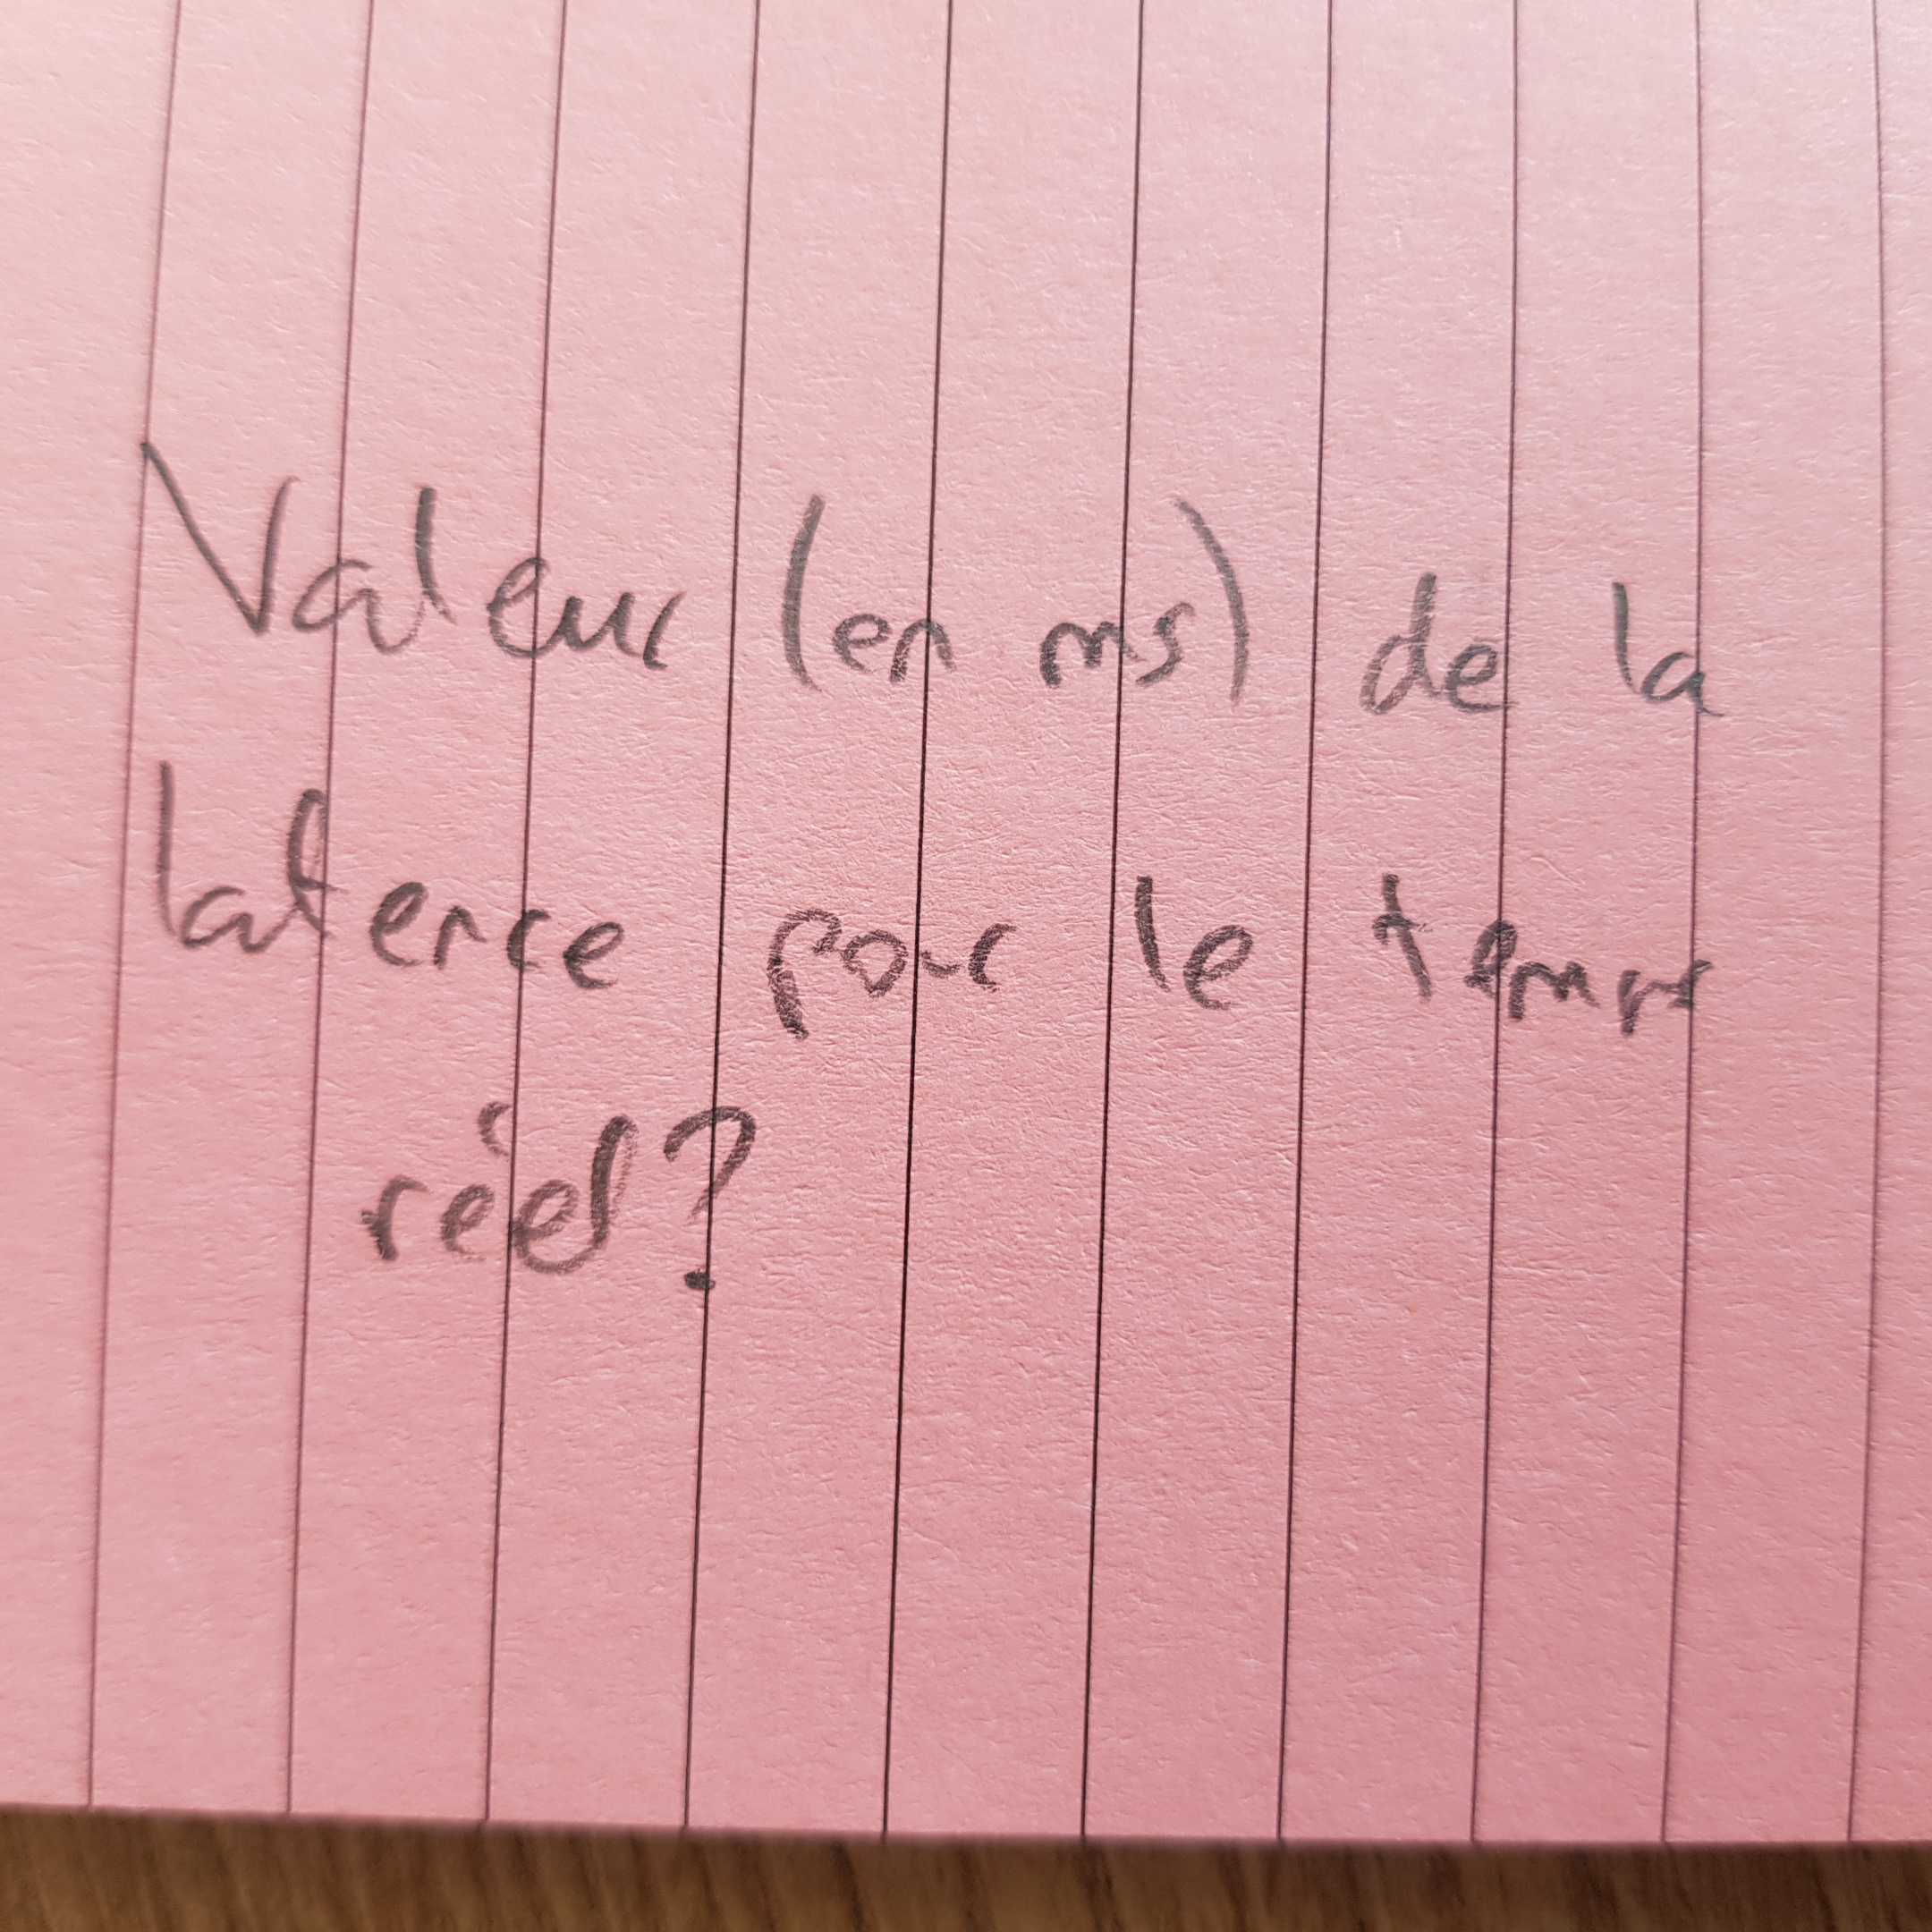 Valeur (en ms) de la
latence pour le temps
réel?